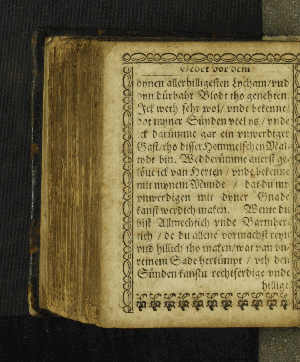 Gebet vor dem
dynen allerhilligesten Lycham / vnd
dyn dürbahr Blodt tho geneten.
Ick weth sehr wol / vnde bekenne /
dat myner Sünden veel ys / vnde
ick darümme gar ein vnwerdiger
Gast / tho disser Hemmelschen Mal-
tydt bin. Wedderümme auerst ge-
löue ick van Herten / vnde bekenne
mit mynem Munde / dat du my
vnwerdigen mit dyner Gnade
kanst werdich maken. Wente du
bist Allmechtich vnde Barmher-
tich / de du allene vormachst reyn
vnd hillich tho maken / wat van vn-
reinem Sade herkümpt / vth den
Sünden kanstu rechtferdige vnde
hillige